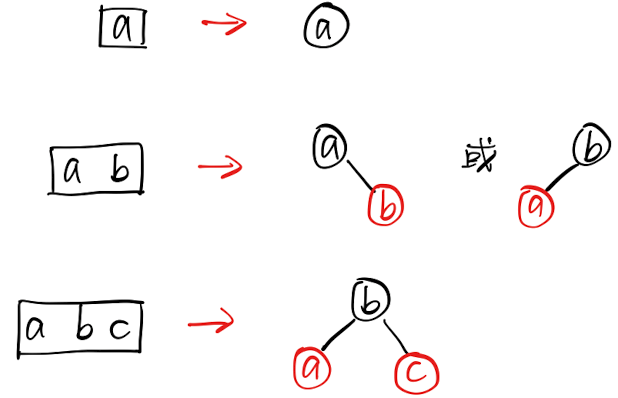 a → a
a b → a b 或 b a
a b c → b a c